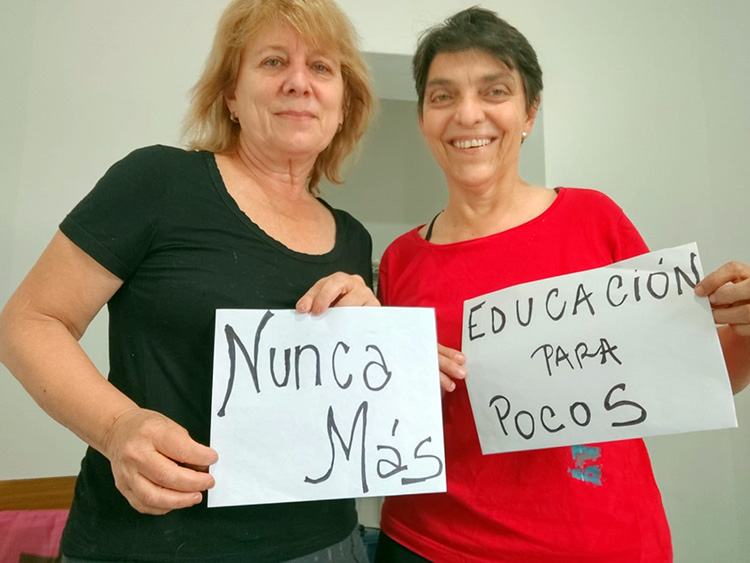 Nunca
Más
EDUCACIÓN
PARA
POCOS